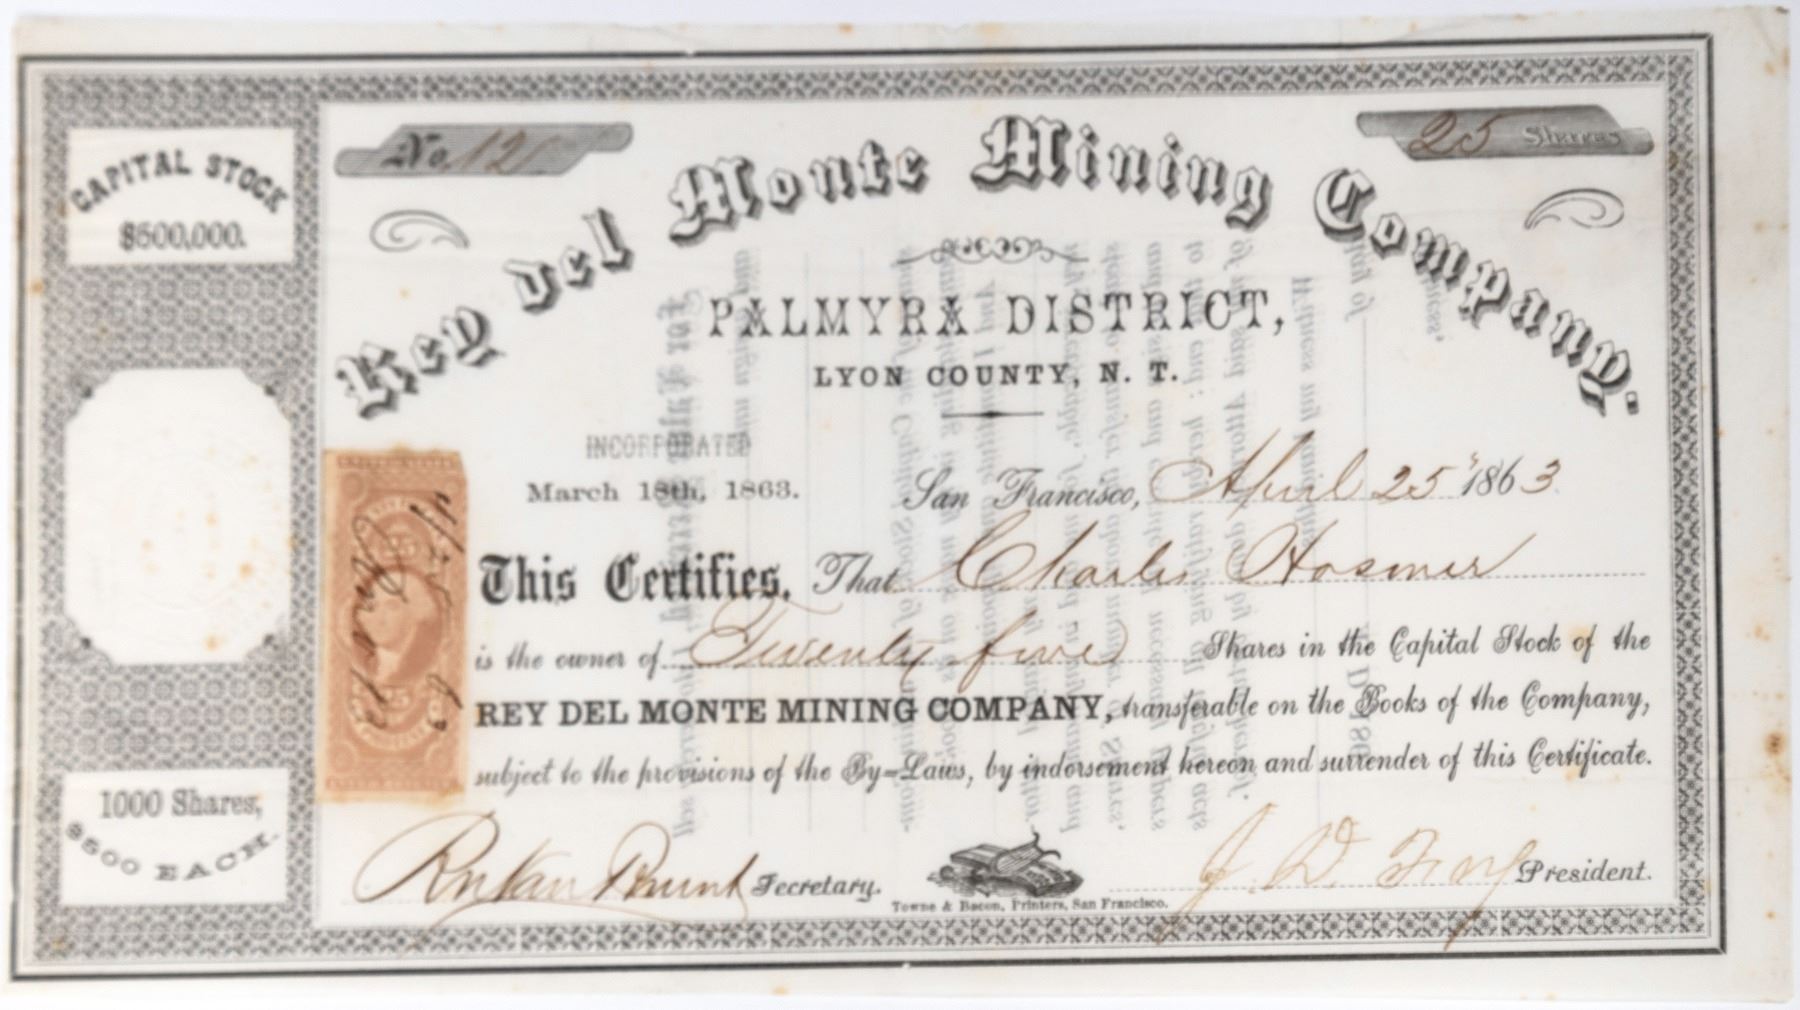 CAPITAL STOCK
$500,000.
No. 12
25 Shares
Rey del Monte Mining Company.
PALMYRA DISTRICT,
LYON COUNTY, N. T.
INCORPORATED
March 18th, 1863.
San Francisco, April 25" 1863
This Certifies, That Charles Hosmer
is the owner of Twenty five Shares in the Capital Stock of the
REY DEL MONTE MINING COMPANY, transferable on the Books of the Company,
subject to the provisions of the By-Laws, by indorsement hereon and surrender of this Certificate.
1000 Shares,
$500 EACH.
Secretary.
President.
Towne & Bacon, Printers, San Francisco.